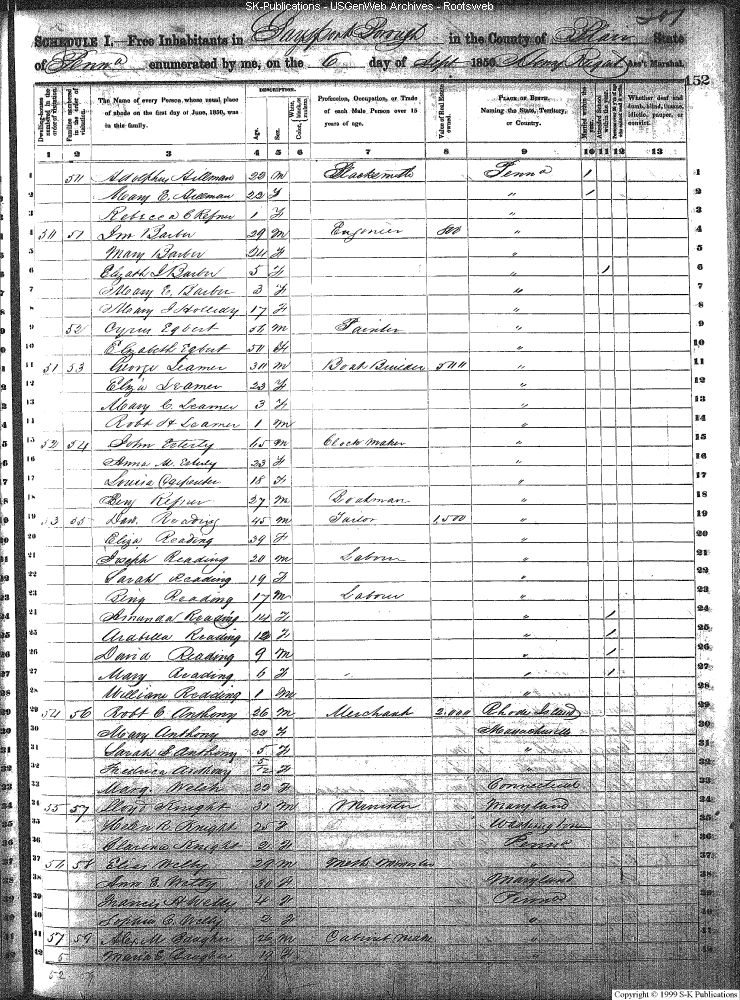 SK-Publications - USGenWeb Archives - Rootsweb
SCHEDULE I.—Free Inhabitants in Gaysport Borough in the County of Blair State
of Penna enumerated by me, on the 6 day of Sept 1850. Ass't Marshal.
152
Dwelling-houses numbered in the order of visitation.
Families numbered in the order of visitation.
The Name of every Person whose usual place of abode on the first day of June, 1850, was in this family.
DESCRIPTION.
Age.
Sex.
White, black, or mulatto.
Color,
Profession, Occupation, or Trade of each Male Person over 15 years of age.
Value of Real Estate owned.
PLACE OF BIRTH. Naming the State, Territory, or Country.
Married within the year.
Attended School within the year.
Whether deaf and dumb, blind, insane, idiotic, pauper, or convict.
1 2 3 4 5 6 7 8 9 10 11 12 13
1 Adolphus Hileman 22 M Blacksmith Penna / 1
2 Mary E. Hileman 22 F " / 2
3 Rebecca C Kefner 1 F " 3
4 51 Barber 29 M Engineer 800 " 4
5 Mary Barber F " 5
6 Elizath J Barber 5 F " / 6
7 Mary E. Barber 3 F " 7
8 Mary J Holliday 17 F " 8
9 52 Cyrus Egbert 56 M Painter " 9
10 Elizabeth Egbert 50 F " 10
11 51 53 George Leamer 30 M Boat Builder 500 " 11
12 Eliza Leamer 23 F " 12
13 Mary C. Leamer 3 F " 13
14 Robt H Leamer 1 M " 14
15 52 54 John Esterly 65 M Clock maker " 15
16 Anna M. Esterly 23 F " 16
17 Louisa Carpenter 18 F " 17
18 Benj Kefner 27 M Boatman " 18
19 53 55 Reading 45 M Tailor 1,500 " 19
20 Eliza Reading 39 F " 20
21 Joseph Reading 20 M Labour " 21
22 Sarah Reading 19 F " 22
23 Reading 17 M Labour " 23
24 Amanda Reading 14 F " / 24
25 Arabella Reading 12 F " / 25
26 David Reading 9 M " / 26
27 Mary Reading 6 F " / 27
28 William Reading 1 M " 28
29 54 56 Robt C Anthony 26 M Merchant 2.000 Rhode Island 29
30 Mary Anthony 22 F Massachusetts 30
31 Sarah E Anthony 5 F " 31
32 Fredrica Anthony 5/12 F " 32
33 Welsh 22 F Connecticut 33
34 55 57 Lloyd Knight 31 M Minister Maryland 34
35 Helen R. Knight 25 F Washington 35
36 Clarina Knight 2 F Penna 36
37 56 58 Elias Welty 29 M Meth Minister " 37
38 Ann G. Welty 30 F Maryland 38
39 Francis A Welty 4 F Penna 39
40 Sophia E. Welty 2 F " 40
41 57 59 Alex M Baugher 26 M Cabinet Make " 41
42 Maria E. Baugher 19 F " 42
Copyright © 1999 S-K Publications